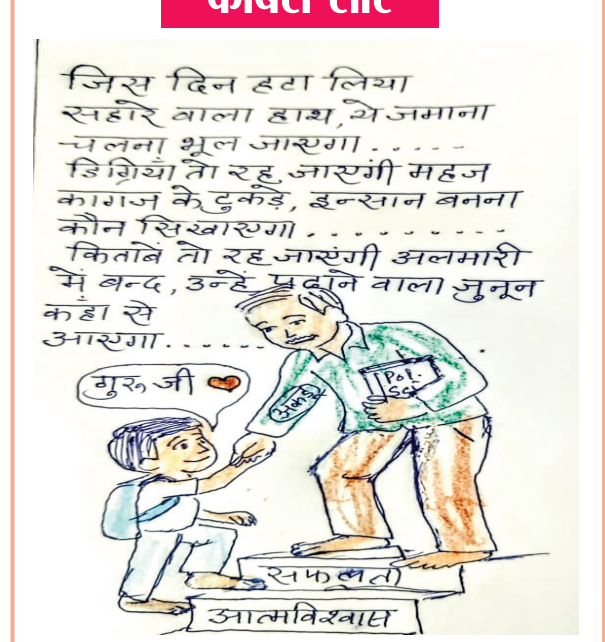 जिस दिन हटा लिया
सहारे वाला हाथ, ये जमाना
चलना भूल जाएगा . . . . . .
डिग्रियाँ तो रह जाएंगी महज
कागज के टुकड़े, इन्सान बनना
कौन सिखाएगा . . . . . . . . . .
किताबें तो रह जाएंगी अलमारी
में बन्द, उन्हें पढ़ाने वाला जुनून
कहाँ से
आएगा . . . . . .
गुरु जी
Pol.
सफलता
आत्मविश्वास